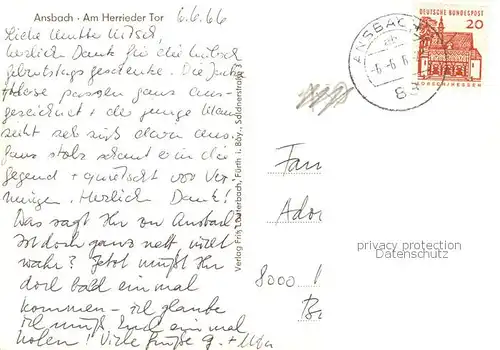 Ansbach · Am Herrieder Tor
6.6.66
Liebe Mutter
herzlich Dank für die hübsch
Geburtstagsgeschenke. Die Jacke
+ Hose passen ganz aus-
gezeichnet + der junge Mann
sieht sehr süß darin aus.
Ganz stolz schaut er in die
Gegend + quietscht vor Ver-
gnügen. Herzlich Dank!
Was sagt Ihr zu Ansbach
Ist doch ganz nett, nicht
wahr? Jetzt müßt Ihr
doch bald einmal
kommen – ich glaube
ich muß Euch einmal
holen! Viele Grüße G. +
Verlag Fritz Lauterbach, Fürth i. Bay., Söldnerstraße 3
ANSBACH
-6.-6.6
DEUTSCHE BUNDESPOST
20
LORSCH/HESSEN
Fam
Ador
8000
privacy protection
Datenschutz